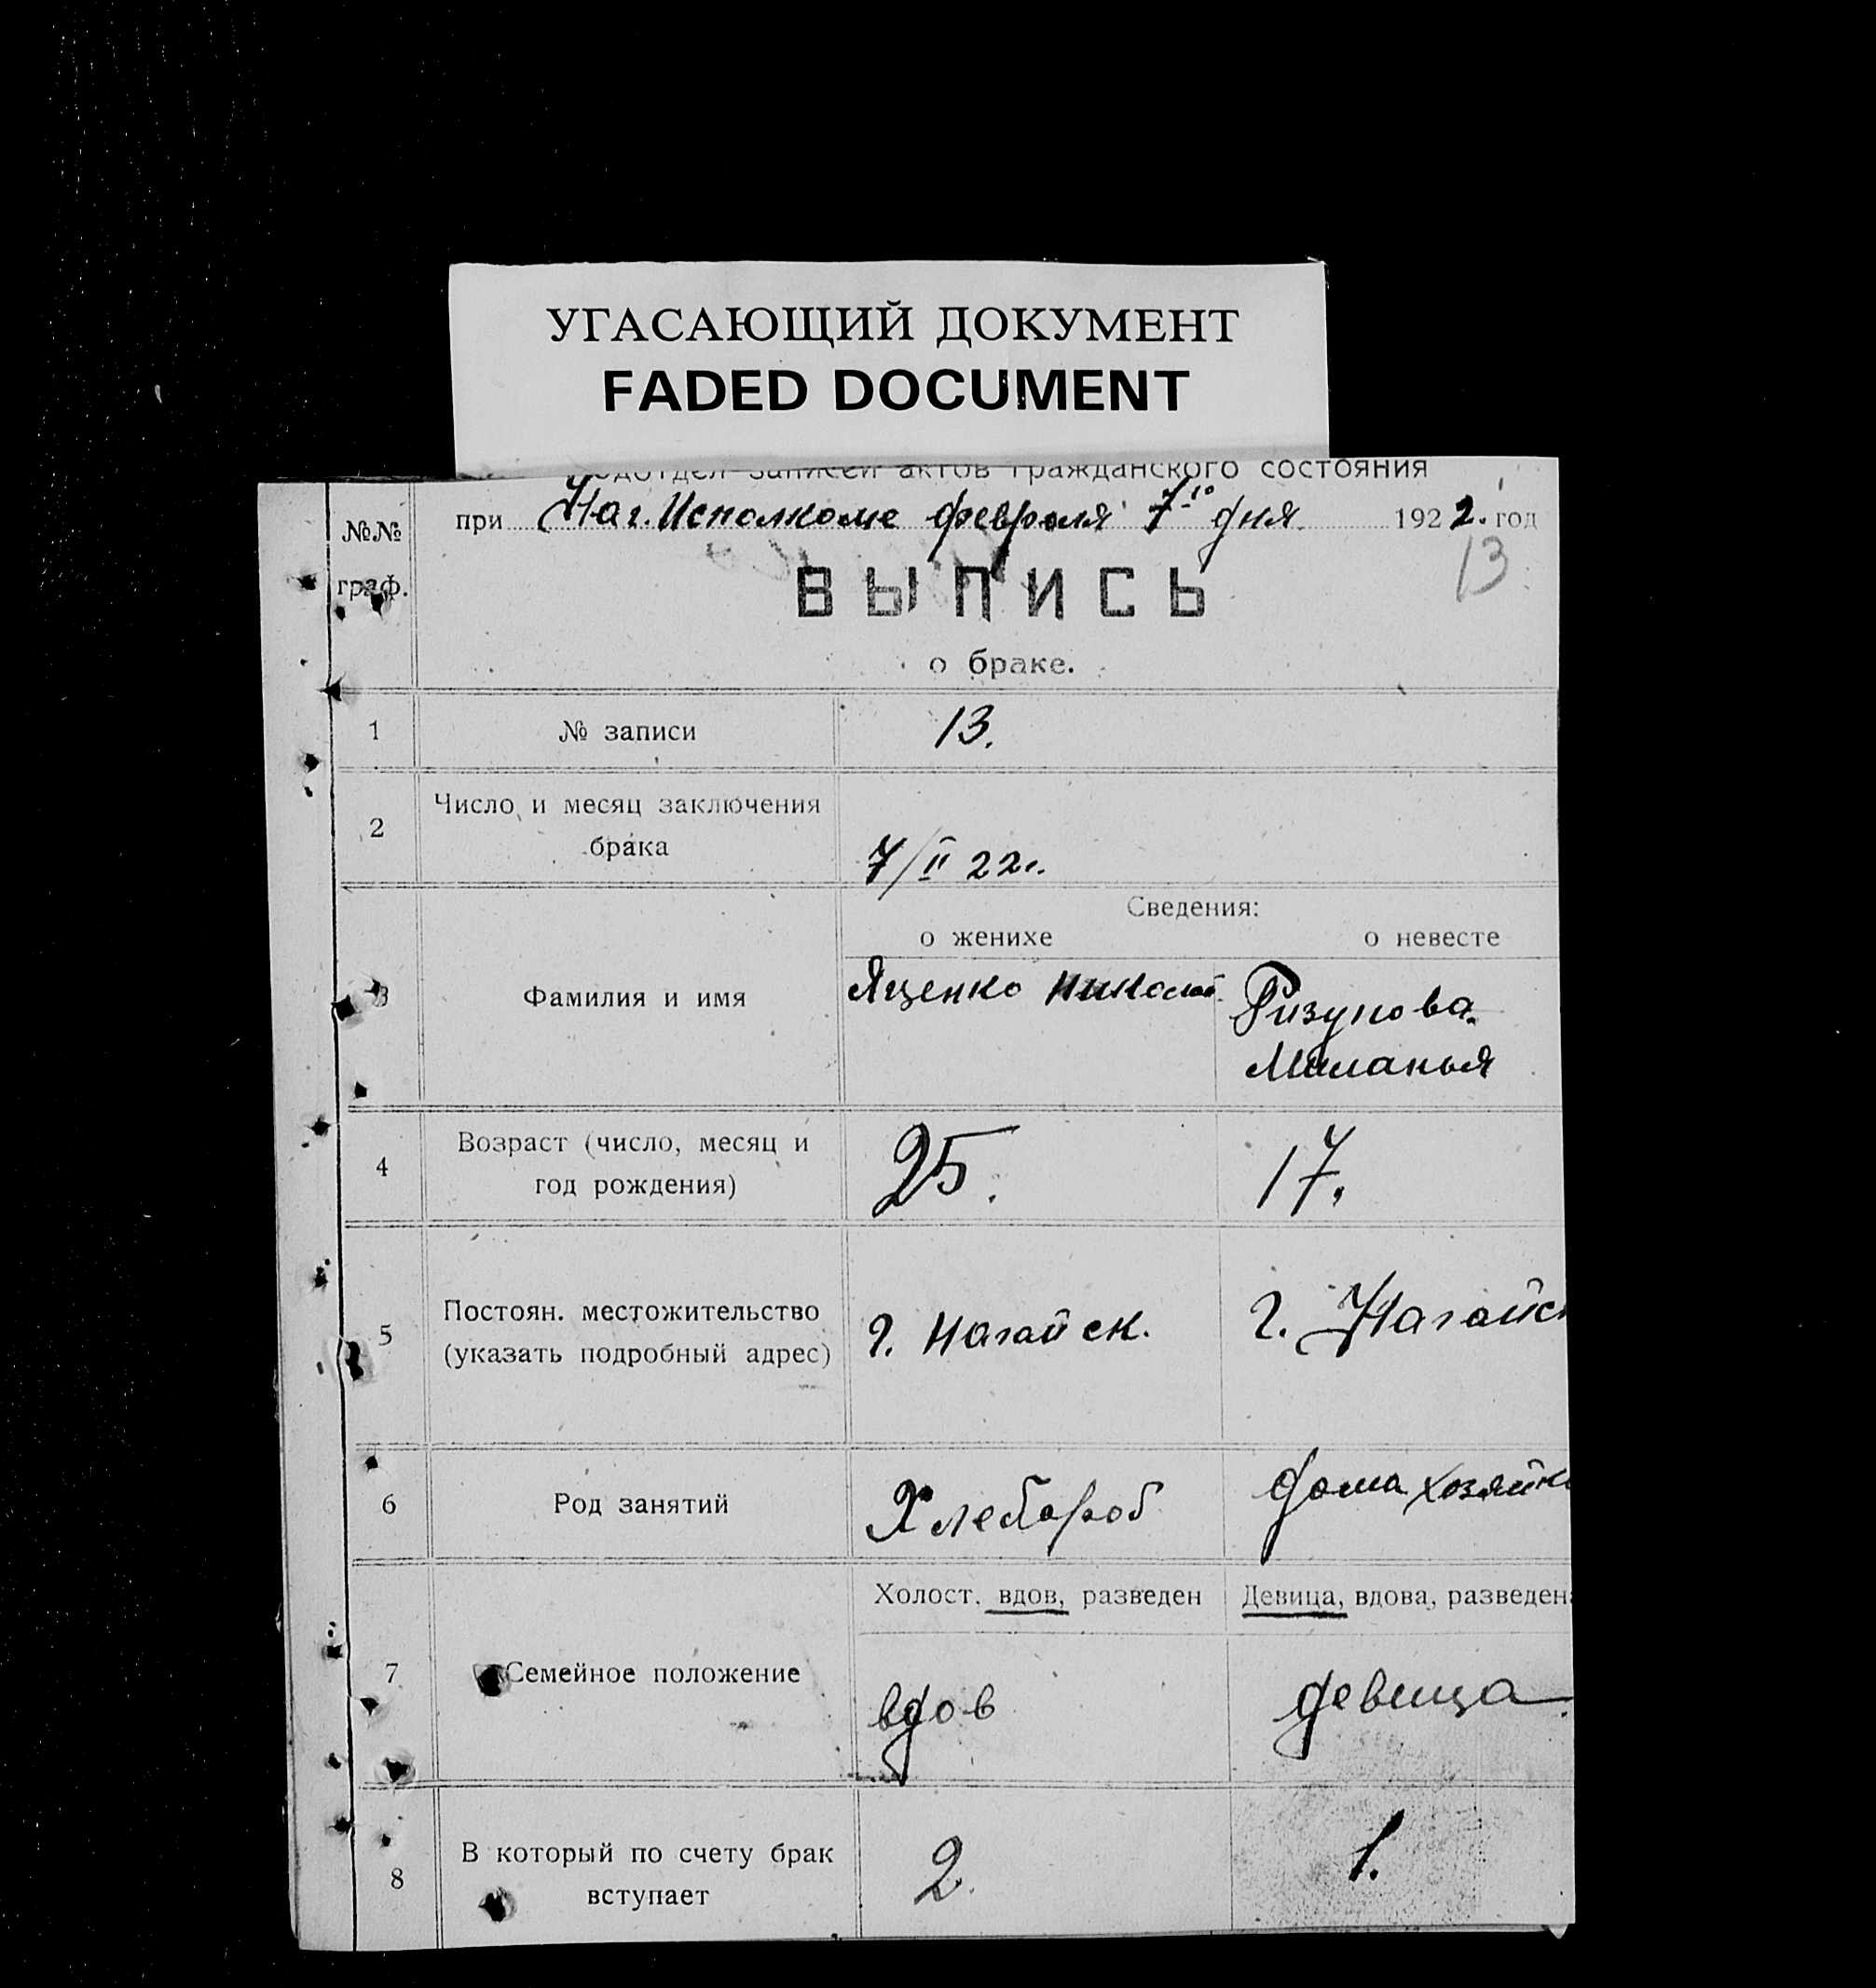 УГАСАЮЩИЙ ДОКУМЕНТ
FADED DOCUMENT
подотдел записей актов гражданского состояния
при Наг. Исполкоме февраля 7-го дня 1922. год
№№
граф.
13
ВЫПИСЬ
о браке.
1 № записи 13.
2 Число и месяц заключения
брака 7/II 22 г.
Сведения:
о женихе о невесте
3 Фамилия и имя Яценко Николай Ризунова
Миланья
4 Возраст (число, месяц и
год рождения) 25. 17.
5 Постоян. местожительство
(указать подробный адрес) г. Нагайск. г. Нагайск
6 Род занятий Хлебороб дома хозяйка
Холост, вдов, разведен Девица, вдова, разведена
7 Семейное положение вдов девица
8 В который по счету брак
вступает 2. 1.